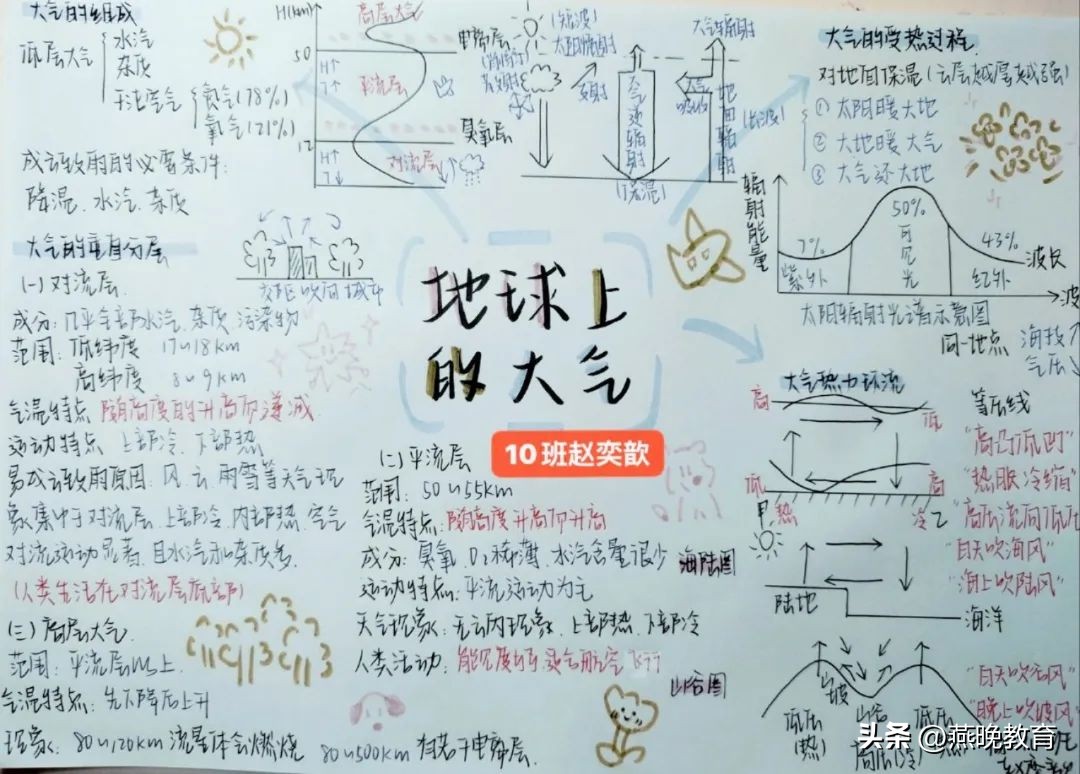 大气的组成
低层大气
水汽
杂质
干洁空气
氮气(78%)
氧气(21%)
成云致雨的必要条件:
降温、水汽、杂质
H(km)
高层大气
50
电离层
H↑
T↑
平流层
臭氧层
12
H↑
T↓
对流层
(短波)
太阳辐射
反射
大气逆辐射
(保温)
大气
吸收
地面辐射
(长波)
大气辐射
大气的受热过程
对地面保温(云层越厚越强)
① 太阳暖大地
② 大地暖大气
③ 大气还大地
辐射能量
7%
紫外
50%
可见光
43%
红外
波长
太阳辐射光谱示意图
同一地点
海拔↑
气压↓
大气的垂直分层
(一)对流层
成分:几乎全部水汽、杂质、污染物
范围:低纬度 17~18km
高纬度 8~9km
气温特点 随高度的升高而递减
运动特点 上部冷、下部热
易成云致雨原因:风、云、雨雪等天气现
象集中于对流层,上部冷、内部热,空气
对流运动显著,且水汽和杂质多。
(人类生活在对流层底部)
地球上
的大气
10班赵奕歆
(二)平流层
范围:50~55km
气温特点:随高度升高而升高
成分:臭氧、O₂稀薄、水汽含量很少
运动特点:平流运动为主
天气现象:无云雨现象、上部热、下部冷
人类活动:能见度好,适合航空飞行
(三)高层大气
范围:平流层以上
气温特点:先下降后上升
现象:80~120km流星体会燃烧
80~500km有若干电离层
大气热力环流
高
低
低
高
甲 热
冷 乙
等压线
"高凸低凹"
"热胀冷缩"
"高压流向低压"
海陆图
陆地
海洋
"白天吹海风"
"晚上吹陆风"
山谷图
山坡
山谷
低压
(热)
高压(冷)
低压
"白天吹谷风"
"晚上吹坡风"
头条 @燕晚教育